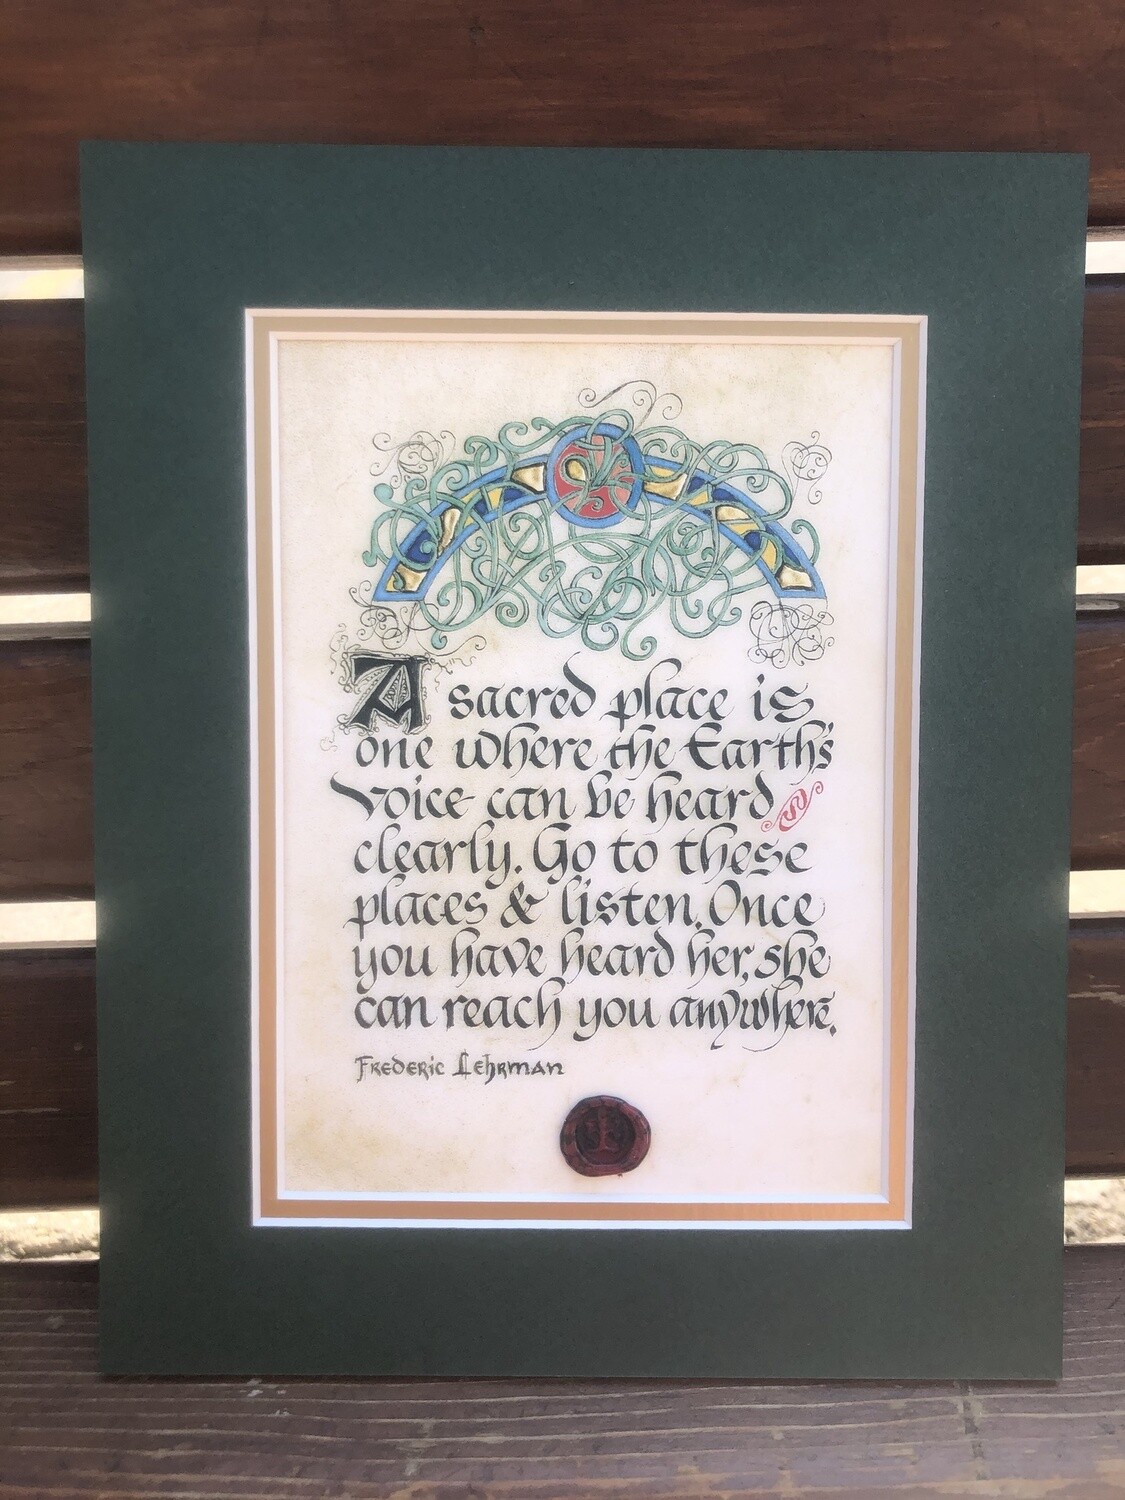 A sacred place is
one where the Earth's
Voice can be heard
clearly. Go to these
places & listen. Once
you have heard her, she
can reach you anywhere.
Frederic Lehrman